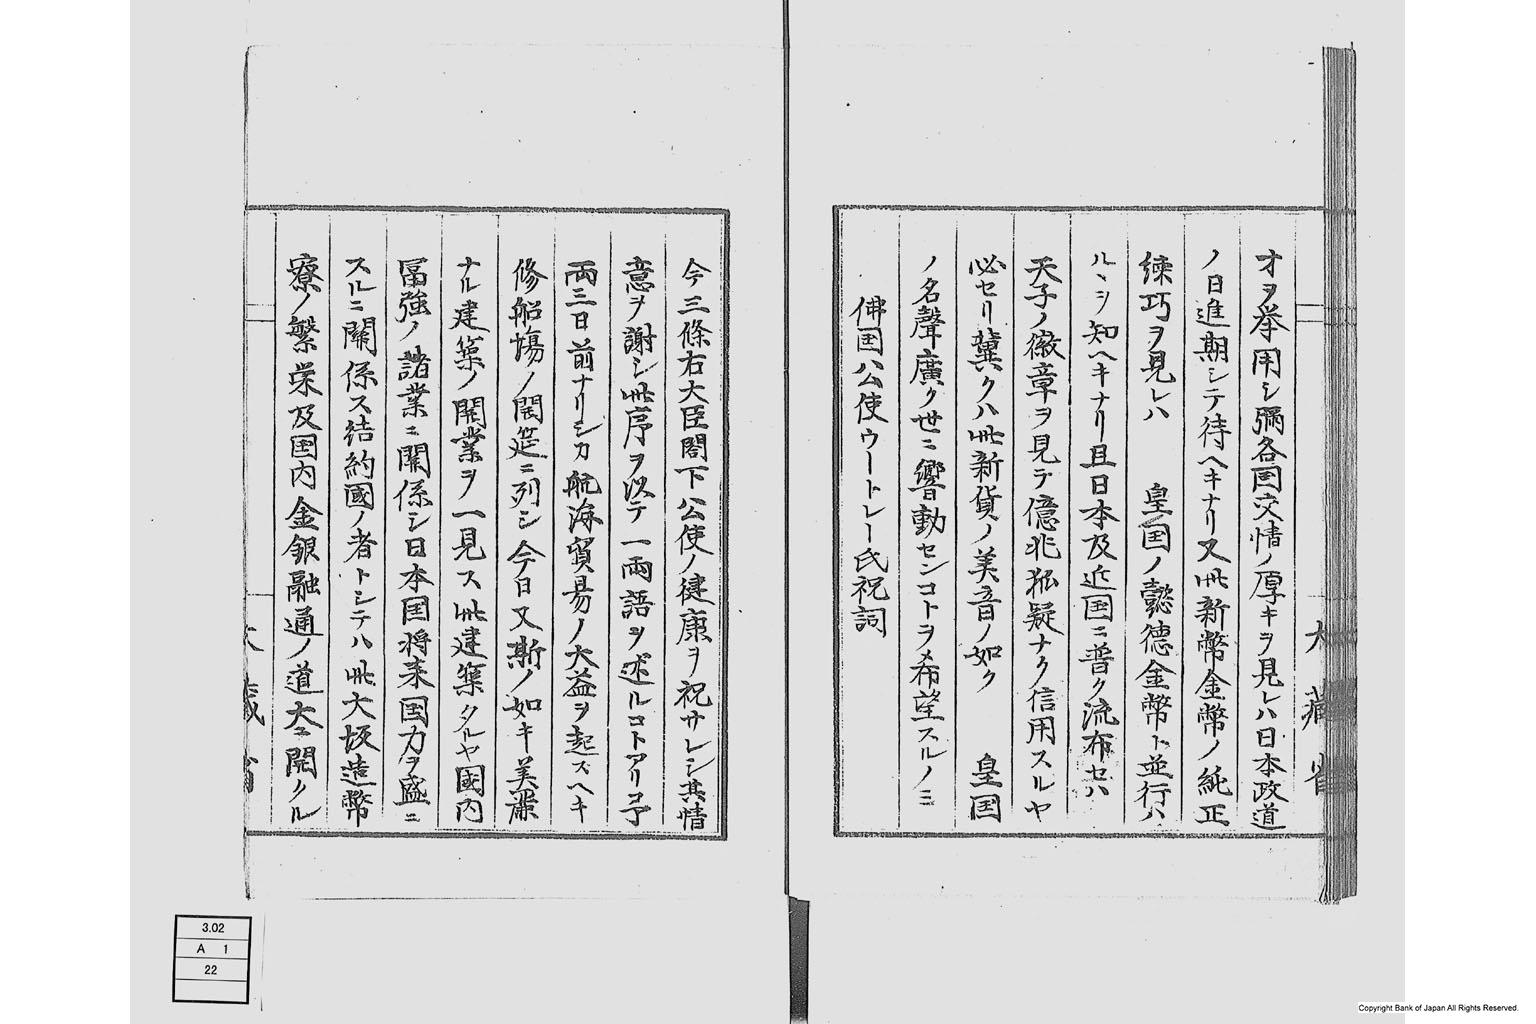 オヲ挙用シ彌各国交情ノ厚キヲ見レハ日本政道
ノ日進期シテ待ヘキナリ又此新幣金幣ノ純正
練巧ヲ見レハ　皇国ノ懿徳金幣ト並行ハ
ルヽヲ知ヘキナリ且日本及近国ニ普ク流布セハ
天子ノ徽章ヲ見テ億兆狐疑ナク信用スルヤ
必セリ冀クハ此新貨ノ美音ノ如ク　皇国
ノ名聲廣ク世ニ響動センコトヲ希望スルノミ
佛国公使ウートレー氏祝詞
大藏省
今三條右大臣閣下公使ノ健康ヲ祝サレシ其情
意ヲ謝シ此序ヲ以テ一両語ヲ述ルコトアリ
両三日前ナリシカ航海貿易ノ大益ヲ起スヘキ
修船場ノ開筵ニ列シ今日又斯ノ如キ美麗
ナル建築ノ開業ヲ一見ス此建築タルヤ國内
冨強ノ諸業ニ關係シ日本国将来国力ヲ盛ニ
スルニ關係ス結約國ノ者トシテハ此大坂造幣
寮ノ繁栄及国内金銀融通ノ道大ニ開クル
大藏省
3.02
A 1
22
Copyright Bank of Japan All Rights Reserved.